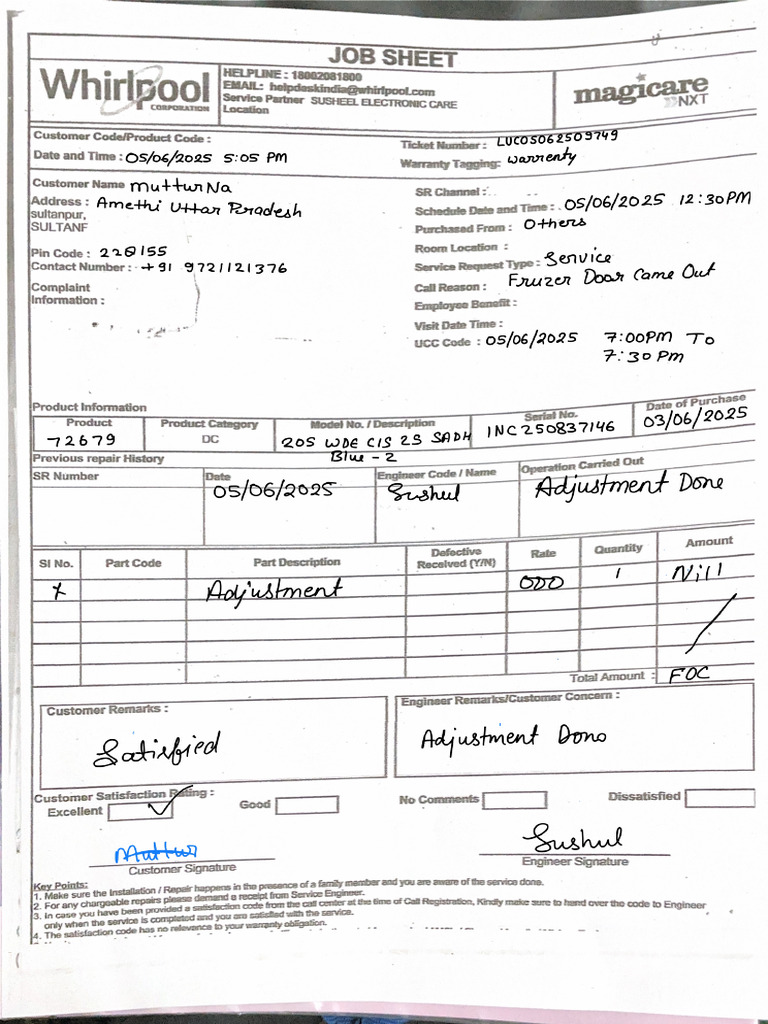 JOB SHEET
Whirlpool
CORPORATION
HELPLINE : 18002081800
EMAIL: helpdeskindia@whirlpool.com
Service Partner SUSHEEL ELECTRONIC CARE
Location
magicare
NXT
Customer Code/Product Code :
Date and Time : 05/06/2025 5:05 PM
Ticket Number : LUC05062509749
Warranty Tagging: warrenty
Customer Name mutturNa
Address : Amethi Uttar Pradesh
sultanpur,
SULTANF
Pin Code : 228155
Contact Number : +91 9721121376
Complaint
Information :
SR Channel :
Schedule Date and Time : 05/06/2025 12:30PM
Purchased From : Others
Room Location :
Service Request Type : Service
Call Reason : Fruzer Door Came Out
Employee Benefit :
Visit Date Time :
UCC Code : 05/06/2025 7:00PM To
7:30 Pm
Product Information
Product Product Category Model No. / Description Serial No. Date of Purchase
72679 DC 205 WDE CIS 2S SADH INC250837146 03/06/2025
Blue - 2
Previous repair History
SR Number Date Engineer Code / Name Operation Carried Out
05/06/2025 Sushul Adjustment Done
Sl No. Part Code Part Description Defective Received (Y/N) Rate Quantity Amount
Adjustment 000 1 Nill
Total Amount : FOC
Customer Remarks :
Satisfied
Engineer Remarks/Customer Concern :
Adjustment Dono
Customer Satisfaction Rating :
Excellent Good No Comments Dissatisfied
Muttur
Customer Signature
Sushul
Engineer Signature
Key Points:
1. Make sure the Installation / Repair happens in the presence of a family member and you are aware of the service done.
2. For any chargeable repairs please demand a receipt from Service Engineer.
3. In case you have been provided a satisfaction code from the call center at the time of Call Registration, Kindly make sure to hand over the code to Engineer
only when the service is completed and you are satisfied with the service.
4. The satisfaction code has no relevance to your warranty obligation.